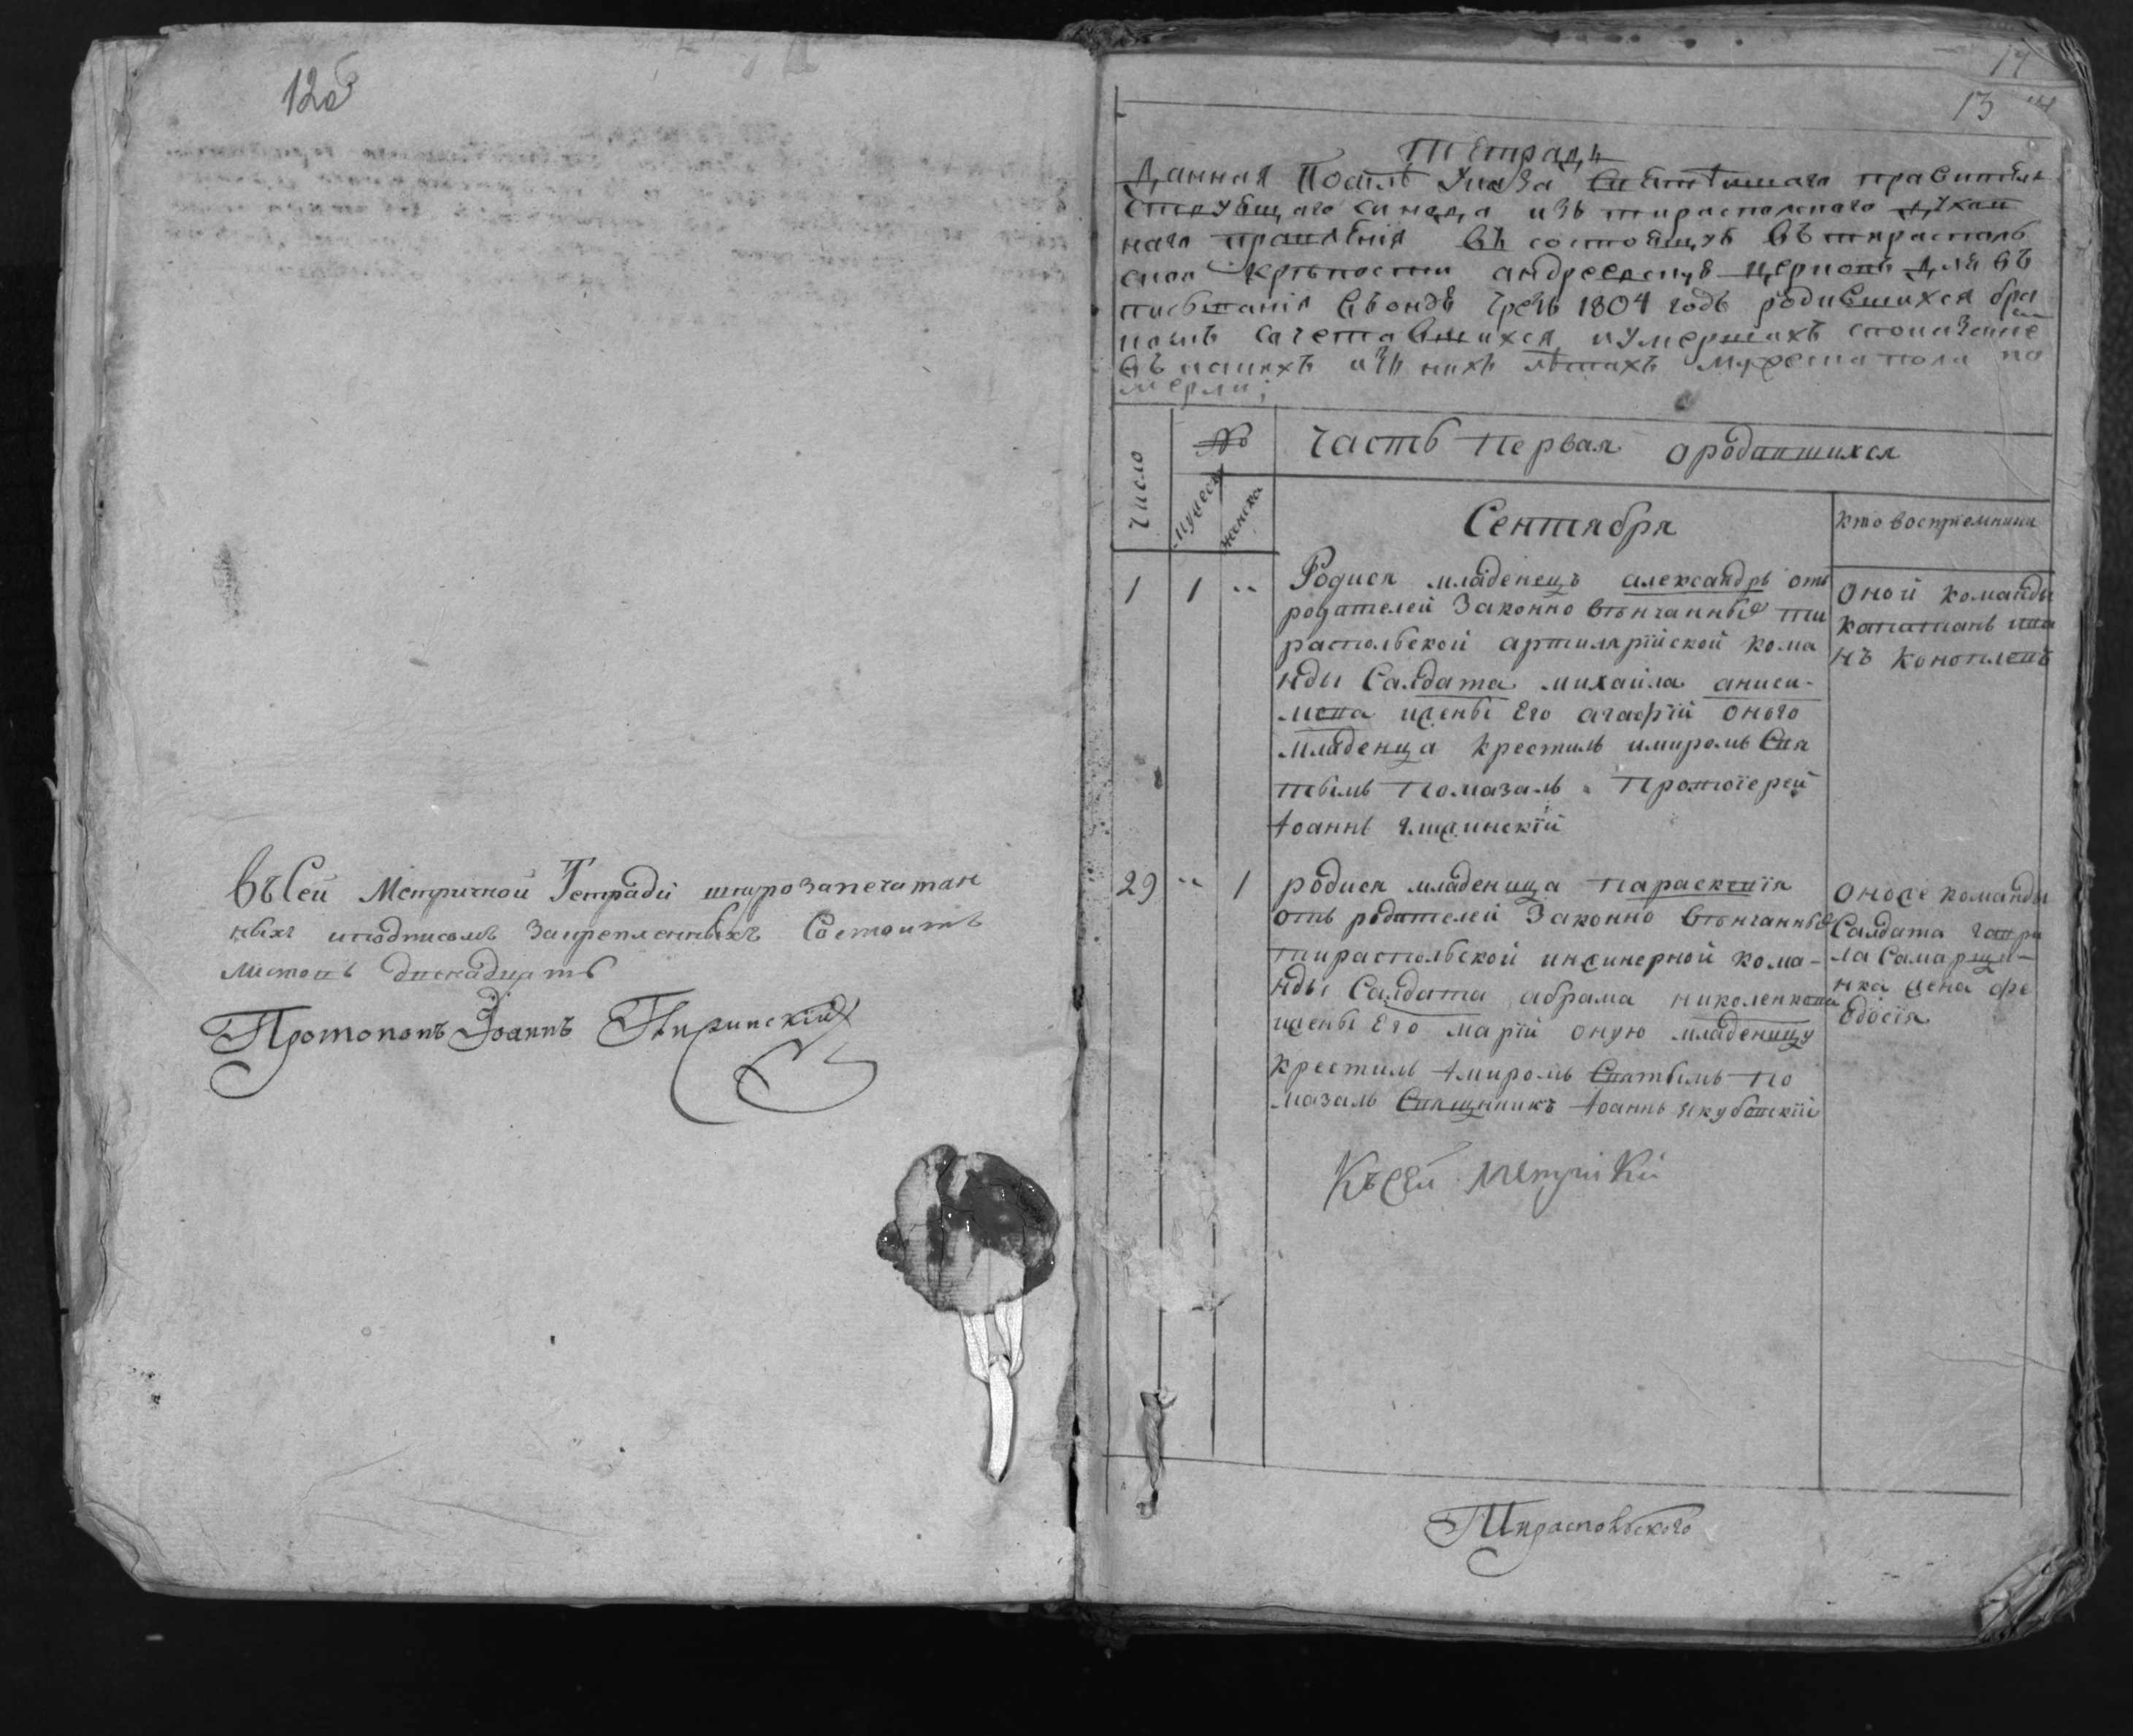 12об
Въ Сей Метричной Тетради шнурозапечатан
ныхъ иподписомъ Закрепленныхъ Состоитъ
листовъ двенадцать
Протопопъ Іоаннъ
14
13
Тетрадь
Данная Посилѣ Указа Святѣишаго правитель
Ствующаго Синода изъ тираспольского духов
наго правлѣнія въ состоящую въ тирасполь
скои крѣпости андреевскую церковь для въ
писыванія въ оную чрезъ 1804 годъ родившихся бра
комъ сочетавшихся иумершихъ споказание
въ какихъ изъ нихъ лѣтахъ мужеска пола по
мерли;
Число
№
мужеск
женска
Часть Первая ородившихся
Сентября
кто восприемники
1 1 ··
Родися младенецъ александръ отъ
родителей Законно вѣнчанные ти
распольской артилярїйской кома
нды Салдата михаила аниси-
мова ижены Его агафїи оного
младенца крестилъ имиромъ Свя
тымъ Помазалъ Протоїерей
Іоаннъ
Оной команды
капитанъ ива
нъ Коноплевъ
29 ·· 1
родися младеница параскевїя
отъ родителей Законно вѣнчанные
тираспольской инженерной кома-
нды Салдата абрама николенкова
ижены Его марїи оную младеницу
крестилъ імиромъ Святымъ по
мазалъ Священникъ Іоаннъ якубовскїй
оноже команды
Салдата гаври
ла Самарще-
нка жена фе
одосїя
Къ сей метрики
Тираспольского